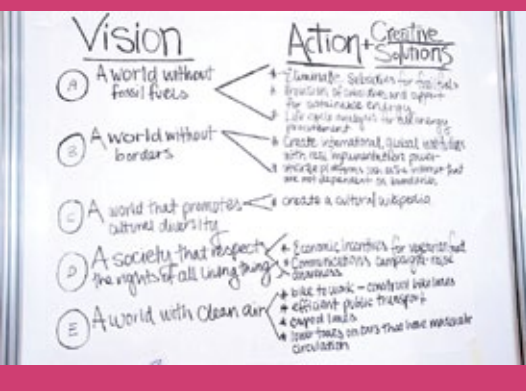 Vision
Action + Creative Solutions
A A world without
fossil fuels
* Eliminate subsidies for fossil fuels
* Provision of subsidies and support
for sustainable energy
* Life cycle analysis for all energy
procurement
B A world without
borders
* Create international, global
with real implementation power
on the internet that
are not dependent on boundaries
C A world that promotes
cultural diversity
* create a cultural wikipedia
D A society that respects
the rights of all living things
* Economic incentives for
* Communications campaigns - raise
awareness
E A world with clean air
* bike to work - construct bike lanes
* efficient public transport
* lanes
* lower taxes on cars that have
circulation